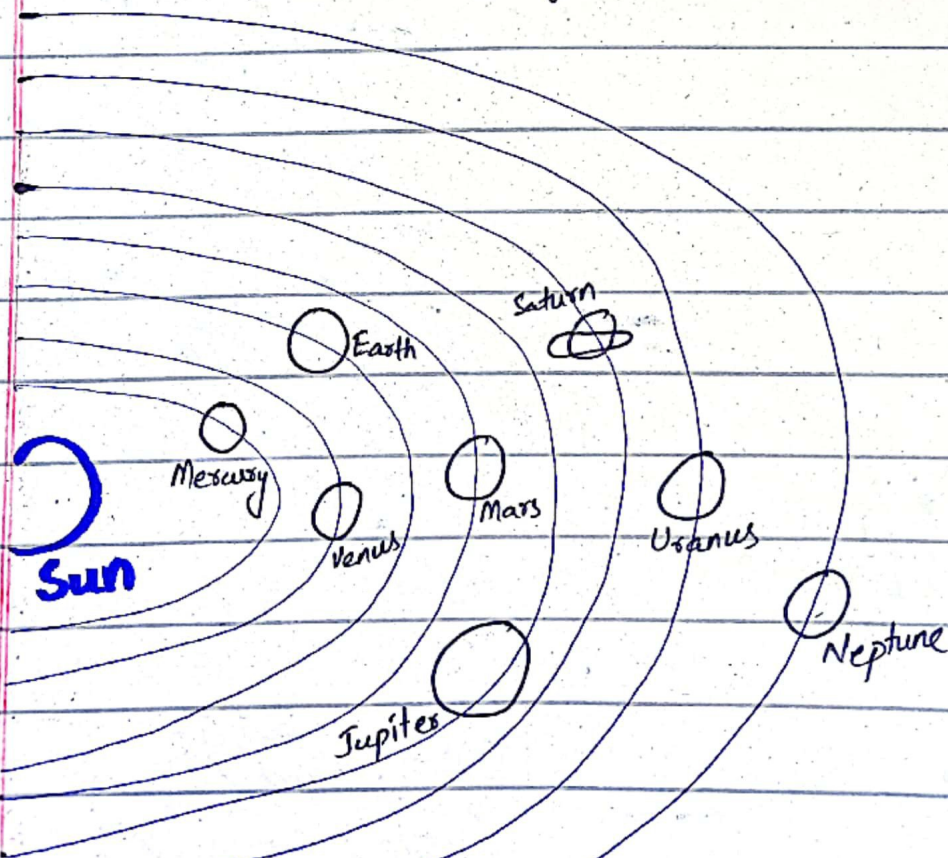 Saturn
Earth
Mercury
Mars
Venus
Uranus
Sun
Neptune
Jupiter